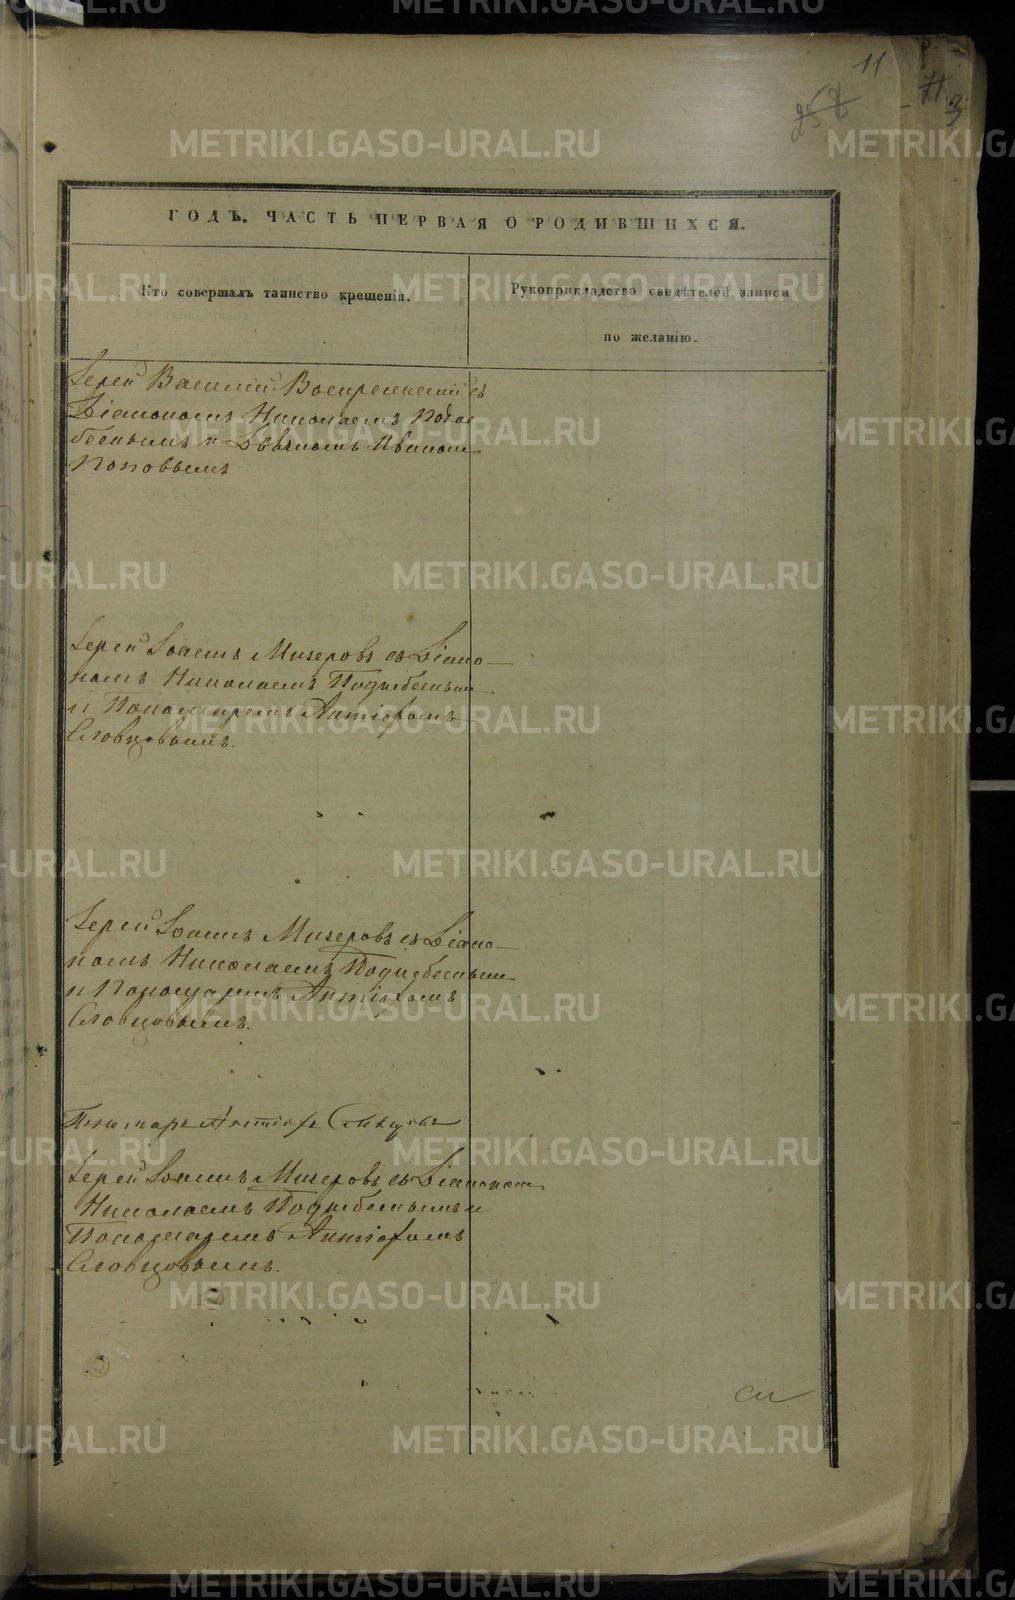 11
258
71
3
ГОДЪ, ЧАСТЬ ПЕРВАЯ О РОДИВШИХСЯ.
Кто совершалъ таинство крещенія.
Рукоприкладство свидѣтелей записи
по желанію.
Іерей Василій Воскресенскій съ
Діакономъ Николаемъ Подне
беснымъ и Дьячкомъ Иваномъ
Поповымъ
Іерей Іоаннъ Мизеровъ съ Діако-
номъ Николаемъ Поднебеснымъ
и Пономаремъ Антіохомъ
Словцовымъ.
Іерей Іоаннъ Мизеровъ съ Діако-
номъ Николаемъ Поднебеснымъ
и Пономаремъ Антіохомъ
Словцовымъ.
Пономарь Антіохъ Словцовъ
Іерей Іоаннъ Мизеровъ съ Діакономъ
Николаемъ Поднебеснымъ и
Пономаремъ Антіохомъ
Словцовымъ.
METRIKI.GASO-URAL.RU